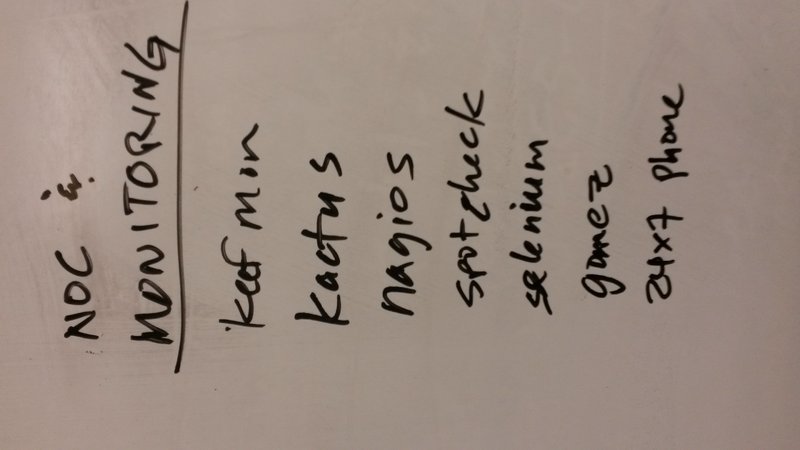 NOC &
MONITORING
keef mon
kactus
nagios
spotcheck
selenium
gomez
24x7 phone